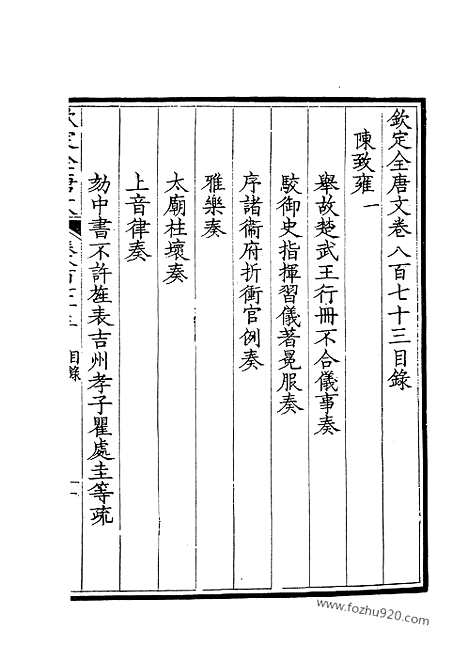 欽定全唐文卷八百七十三目錄
陳致雍一
舉故楚武王行冊不合儀事奏
駮御史指揮習儀著冕服奏
序諸衞府折衝官例奏
雅樂奏
太廟柱壞奏
上音律奏
劾中書不許旌表吉州孝子瞿處圭等疏
目錄
一
www.fozhu920.com